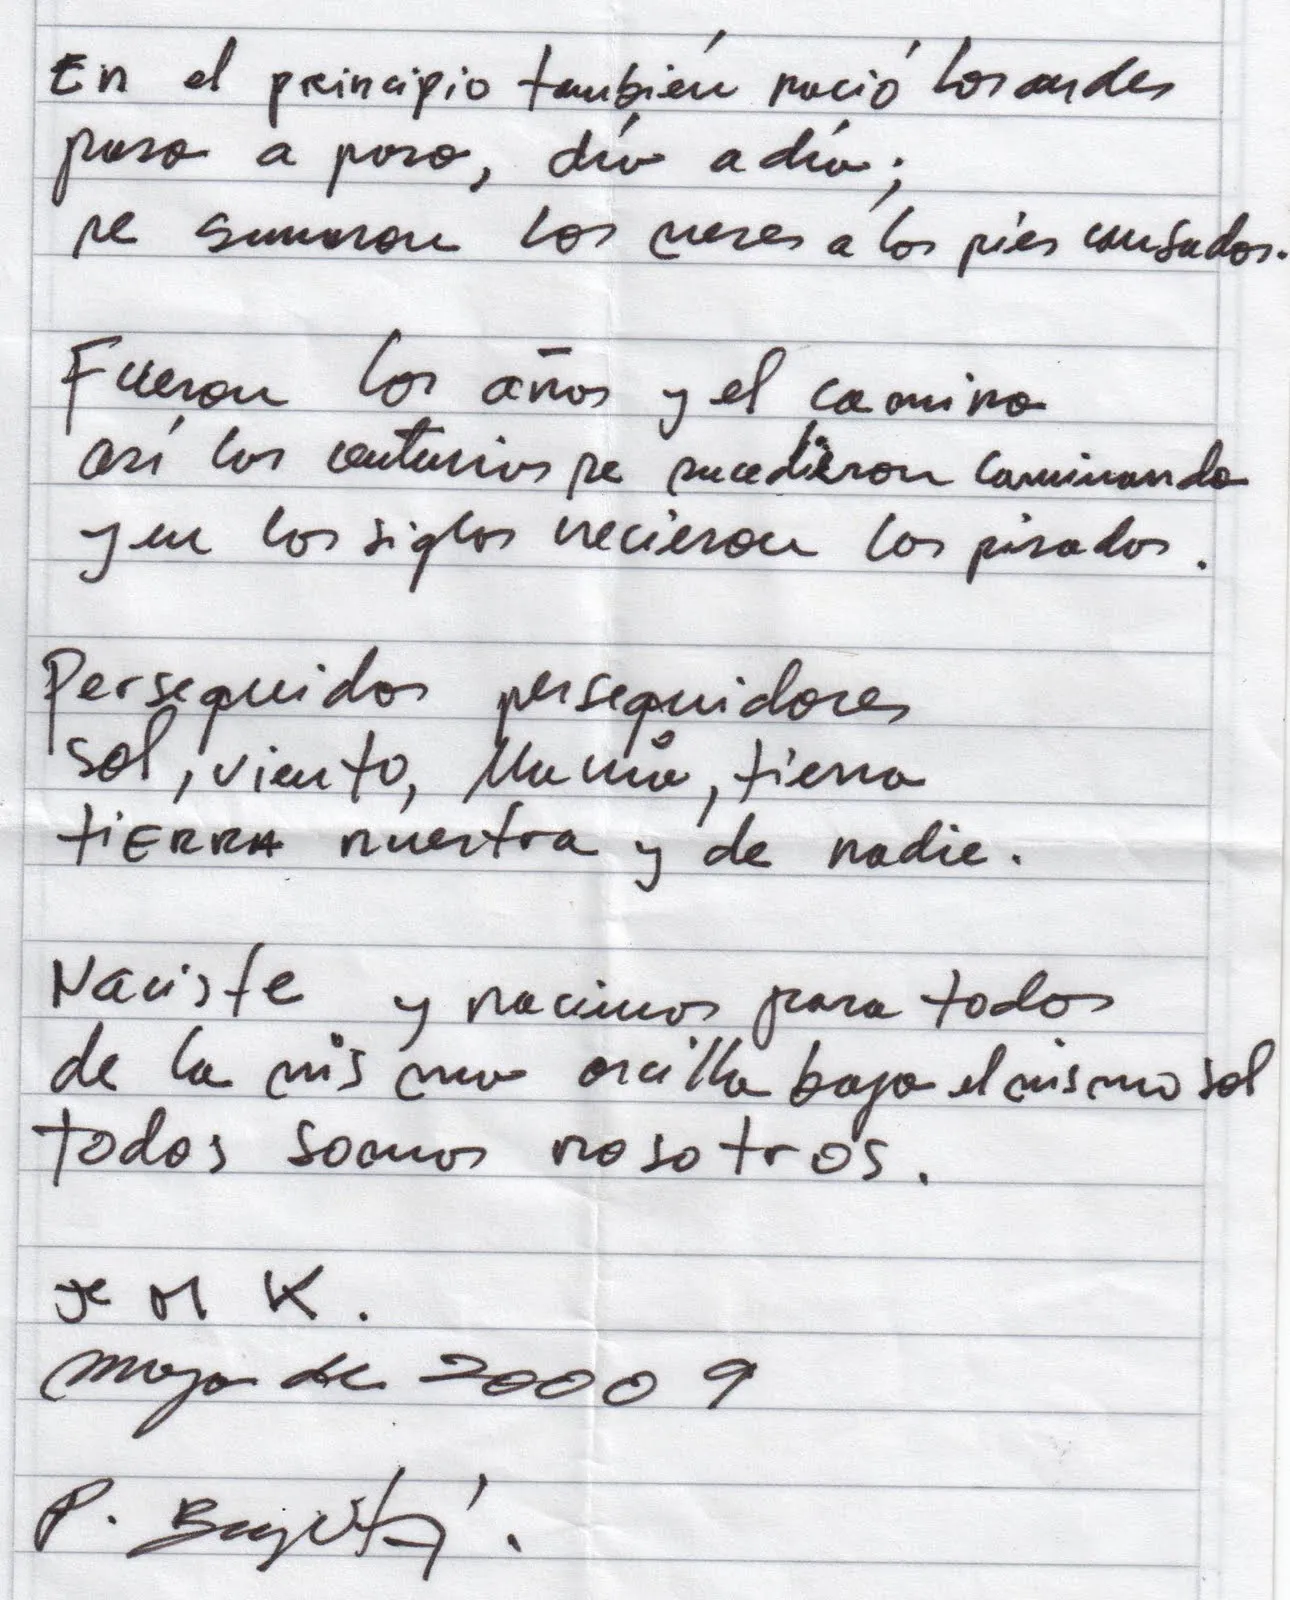 En el principio también nació Losandes
paso a paso, día a día;
se sumaron los meses a los pies cansados.
Fueron los años y el camino
así las centurias se sucedieron caminando
y en los siglos crecieron las pisadas.
Perseguidos perseguidores
sol, viento, lluvia, tierra
tiERRA nuestra y de nadie.
Naciste y nacimos para todos
de la misma arcilla bajo el mismo sol
todos somos nosotros.
M K.
mayo de 20009
P.